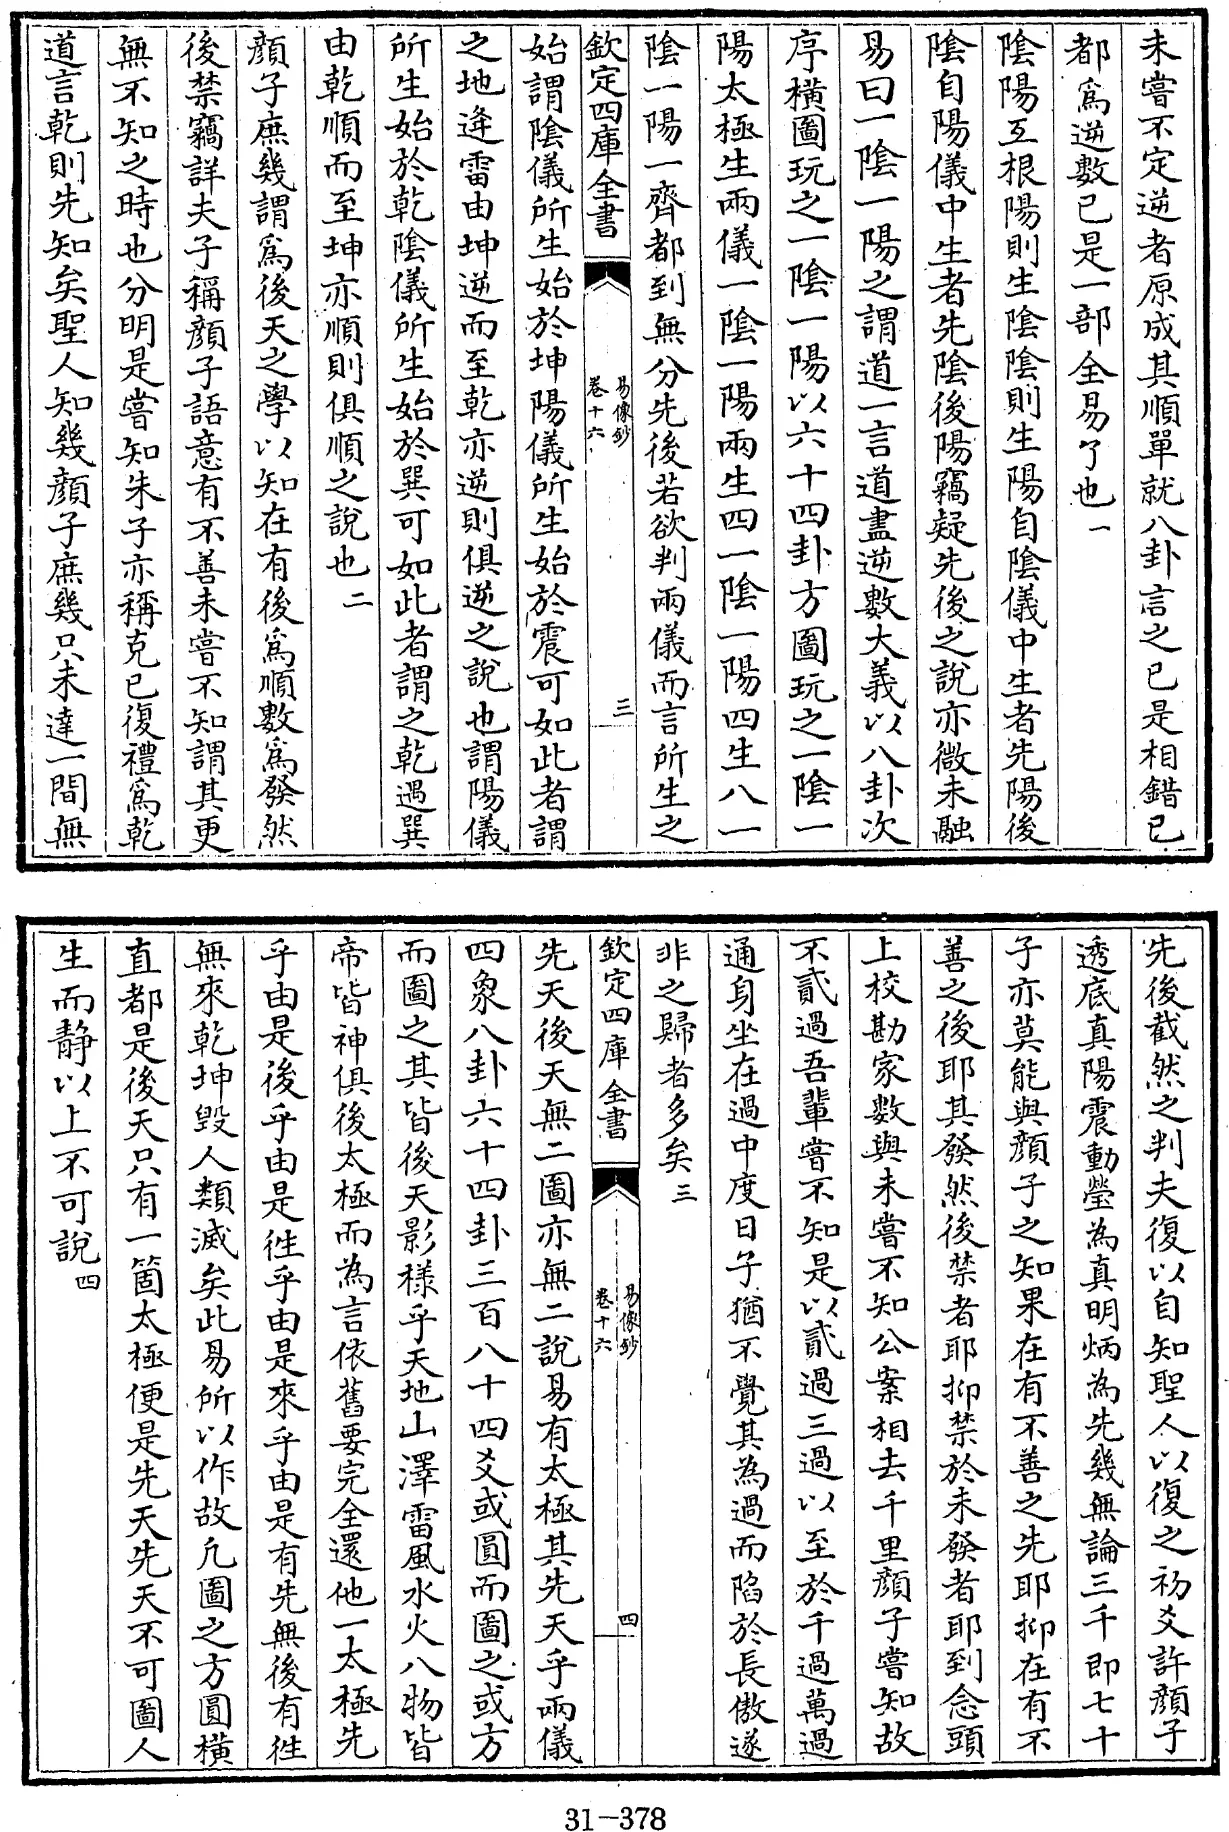 未嘗不定逆者原成其順單就八卦言之已是相錯已
都爲逆數已是一部全易了也一
陰陽互根陽則生陰陰則生陽自陰儀中生者先陽後
陰自陽儀中生者先陰後陽竊疑先後之說亦微未融
易曰一陰一陽之謂道一言道盡逆數大義以八卦次
序橫圖玩之一陰一陽以六十四卦方圖玩之一陰一
陽太極生兩儀一陰一陽兩生四一陰一陽四生八一
陰一陽一齊都到無分先後若欲判兩儀而言所生之
欽定四庫全書
易像鈔
卷十六
三
始謂陰儀所生始於坤陽儀所生始於震可如此者謂
之地逄雷由坤逆而至乾亦逆則俱逆之說也謂陽儀
所生始於乾陰儀所生始於巽可如此者謂之乾遇巽
由乾順而至坤亦順則俱順之說也二
顔子庶幾謂爲後天之學以知在有後爲順數爲發然
後禁竊詳夫子稱顔子語意有不善未嘗不知謂其更
無不知之時也分明是嘗知朱子亦稱克已復禮爲乾
道言乾則先知矣聖人知幾顔子庶幾只未達一間無
先後截然之判夫復以自知聖人以復之初爻許顔子
透底真陽震動瑩為真明炳為先幾無論三千即七十
子亦莫能與顔子之知果在有不善之先耶抑在有不
善之後耶其發然後禁者耶抑禁於未發者耶到念頭
上校勘家數與未嘗不知公案相去千里顔子嘗知故
不貳過吾輩嘗不知是以貳過三過以至於千過萬過
通身坐在過中度日子猶不覺其為過而陷於長傲遂
非之歸者多矣三
欽定四庫全書
易像鈔
卷十六
四
先天後天無二圖亦無二說易有太極其先天乎兩儀
四象八卦六十四卦三百八十四爻或圓而圖之或方
而圖之其皆後天影樣乎天地山澤雷風水火八物皆
帝皆神俱後太極而為言依舊要完全還他一太極先
乎由是後乎由是徃乎由是來乎由是有先無後有徃
無來乾坤毀人類滅矣此易所以作故凢圖之方圓橫
直都是後天只有一箇太極便是先天先天不可圖人
生而靜以上不可說四
31-378